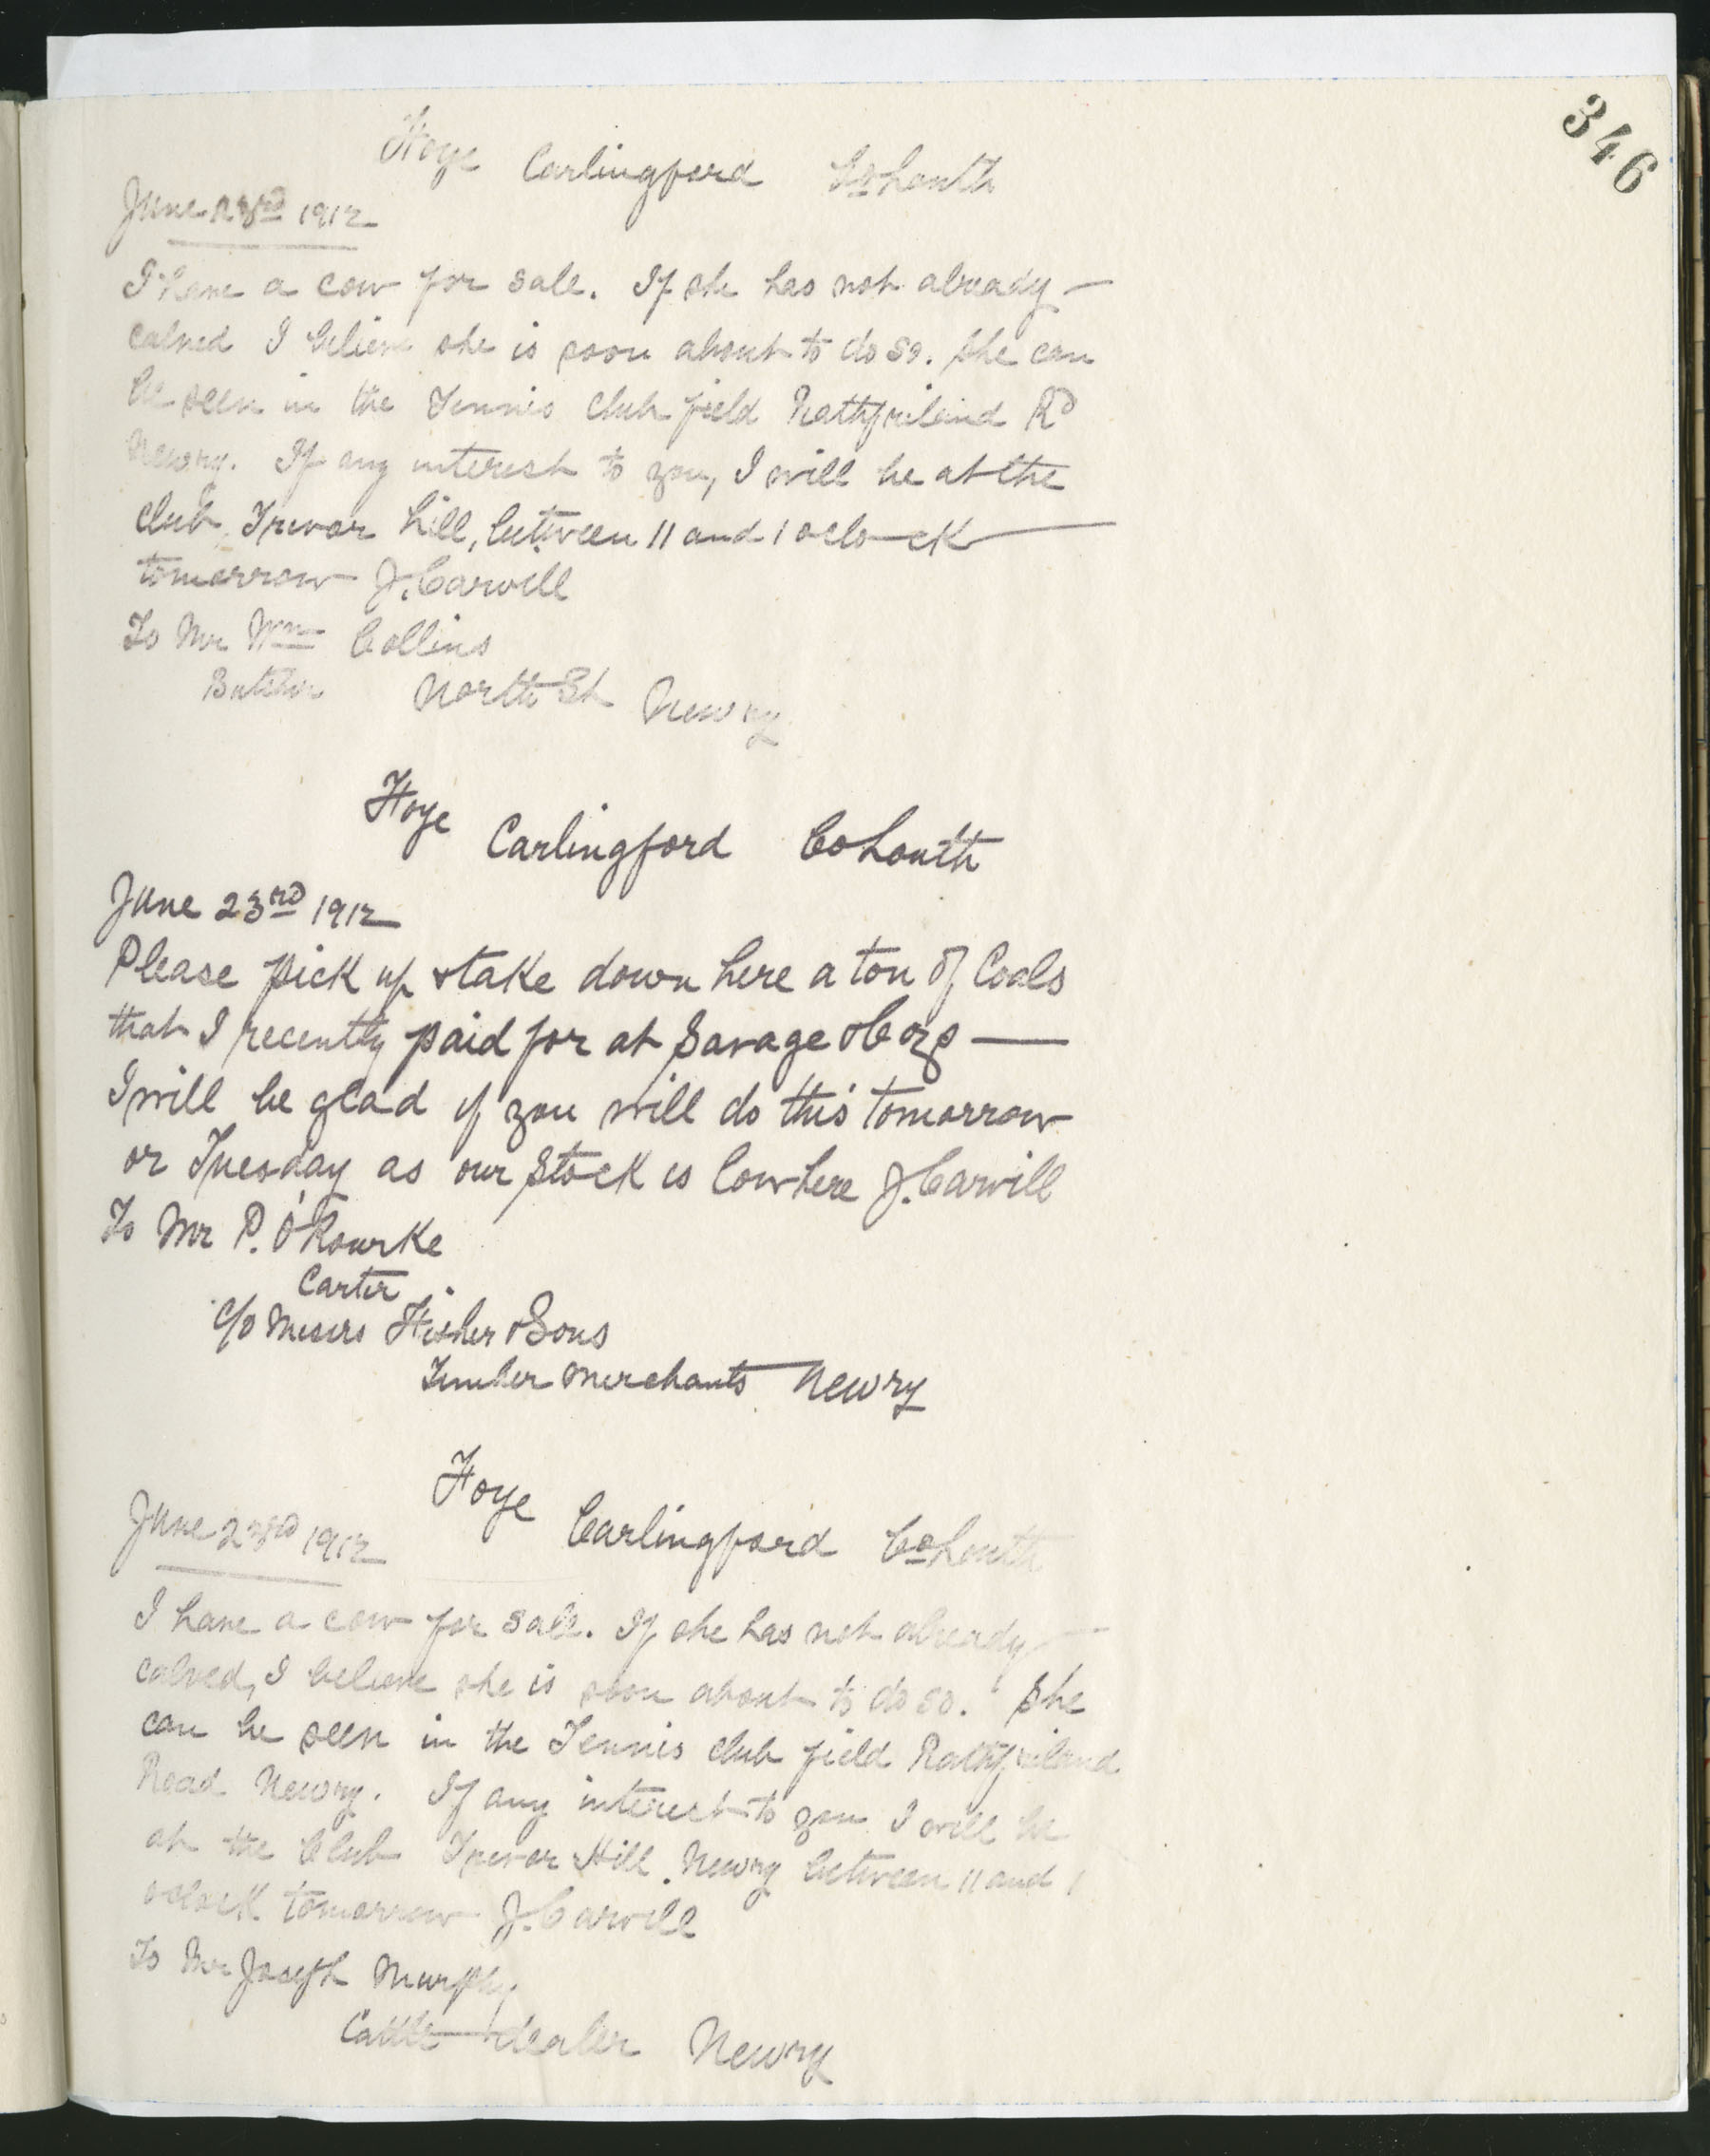 346
Foye Carlingford Co Louth
June 23rd 1912
I have a cow for sale. If she has not already —
calved I believe she is soon about to do so. She can
be seen in the Tennis Club field Rathfriland Rd
Newry. If any interest to you, I will be at the
club, Trevor hill, between 11 and 1 oclock —
tomorrow J. Carvill
To Mr Wm Collins
Butcher North St Newry
Foye Carlingford Co Louth
June 23rd 1912
Please pick up & take down here a ton of Coals
that I recently paid for at Savage & Coys —
I will be glad if you will do this tomorrow
or Tuesday as our Stock is low here J. Carvill
To Mr P. O'Rourke
Carter
c/o Messrs Fisher & Sons
Timber Merchants Newry
Foye Carlingford Co Louth
June 23rd 1912
I have a cow for sale. If she has not already —
calved, I believe she is soon about to do so. She
can be seen in the Tennis club field Rathfriland
Road Newry. If any interest to you I will be
at the Club Trevor Hill. Newry between 11 and 1
oclock tomorrow J. Carvill
To Mr Joseph Murphy
Cattle dealer Newry